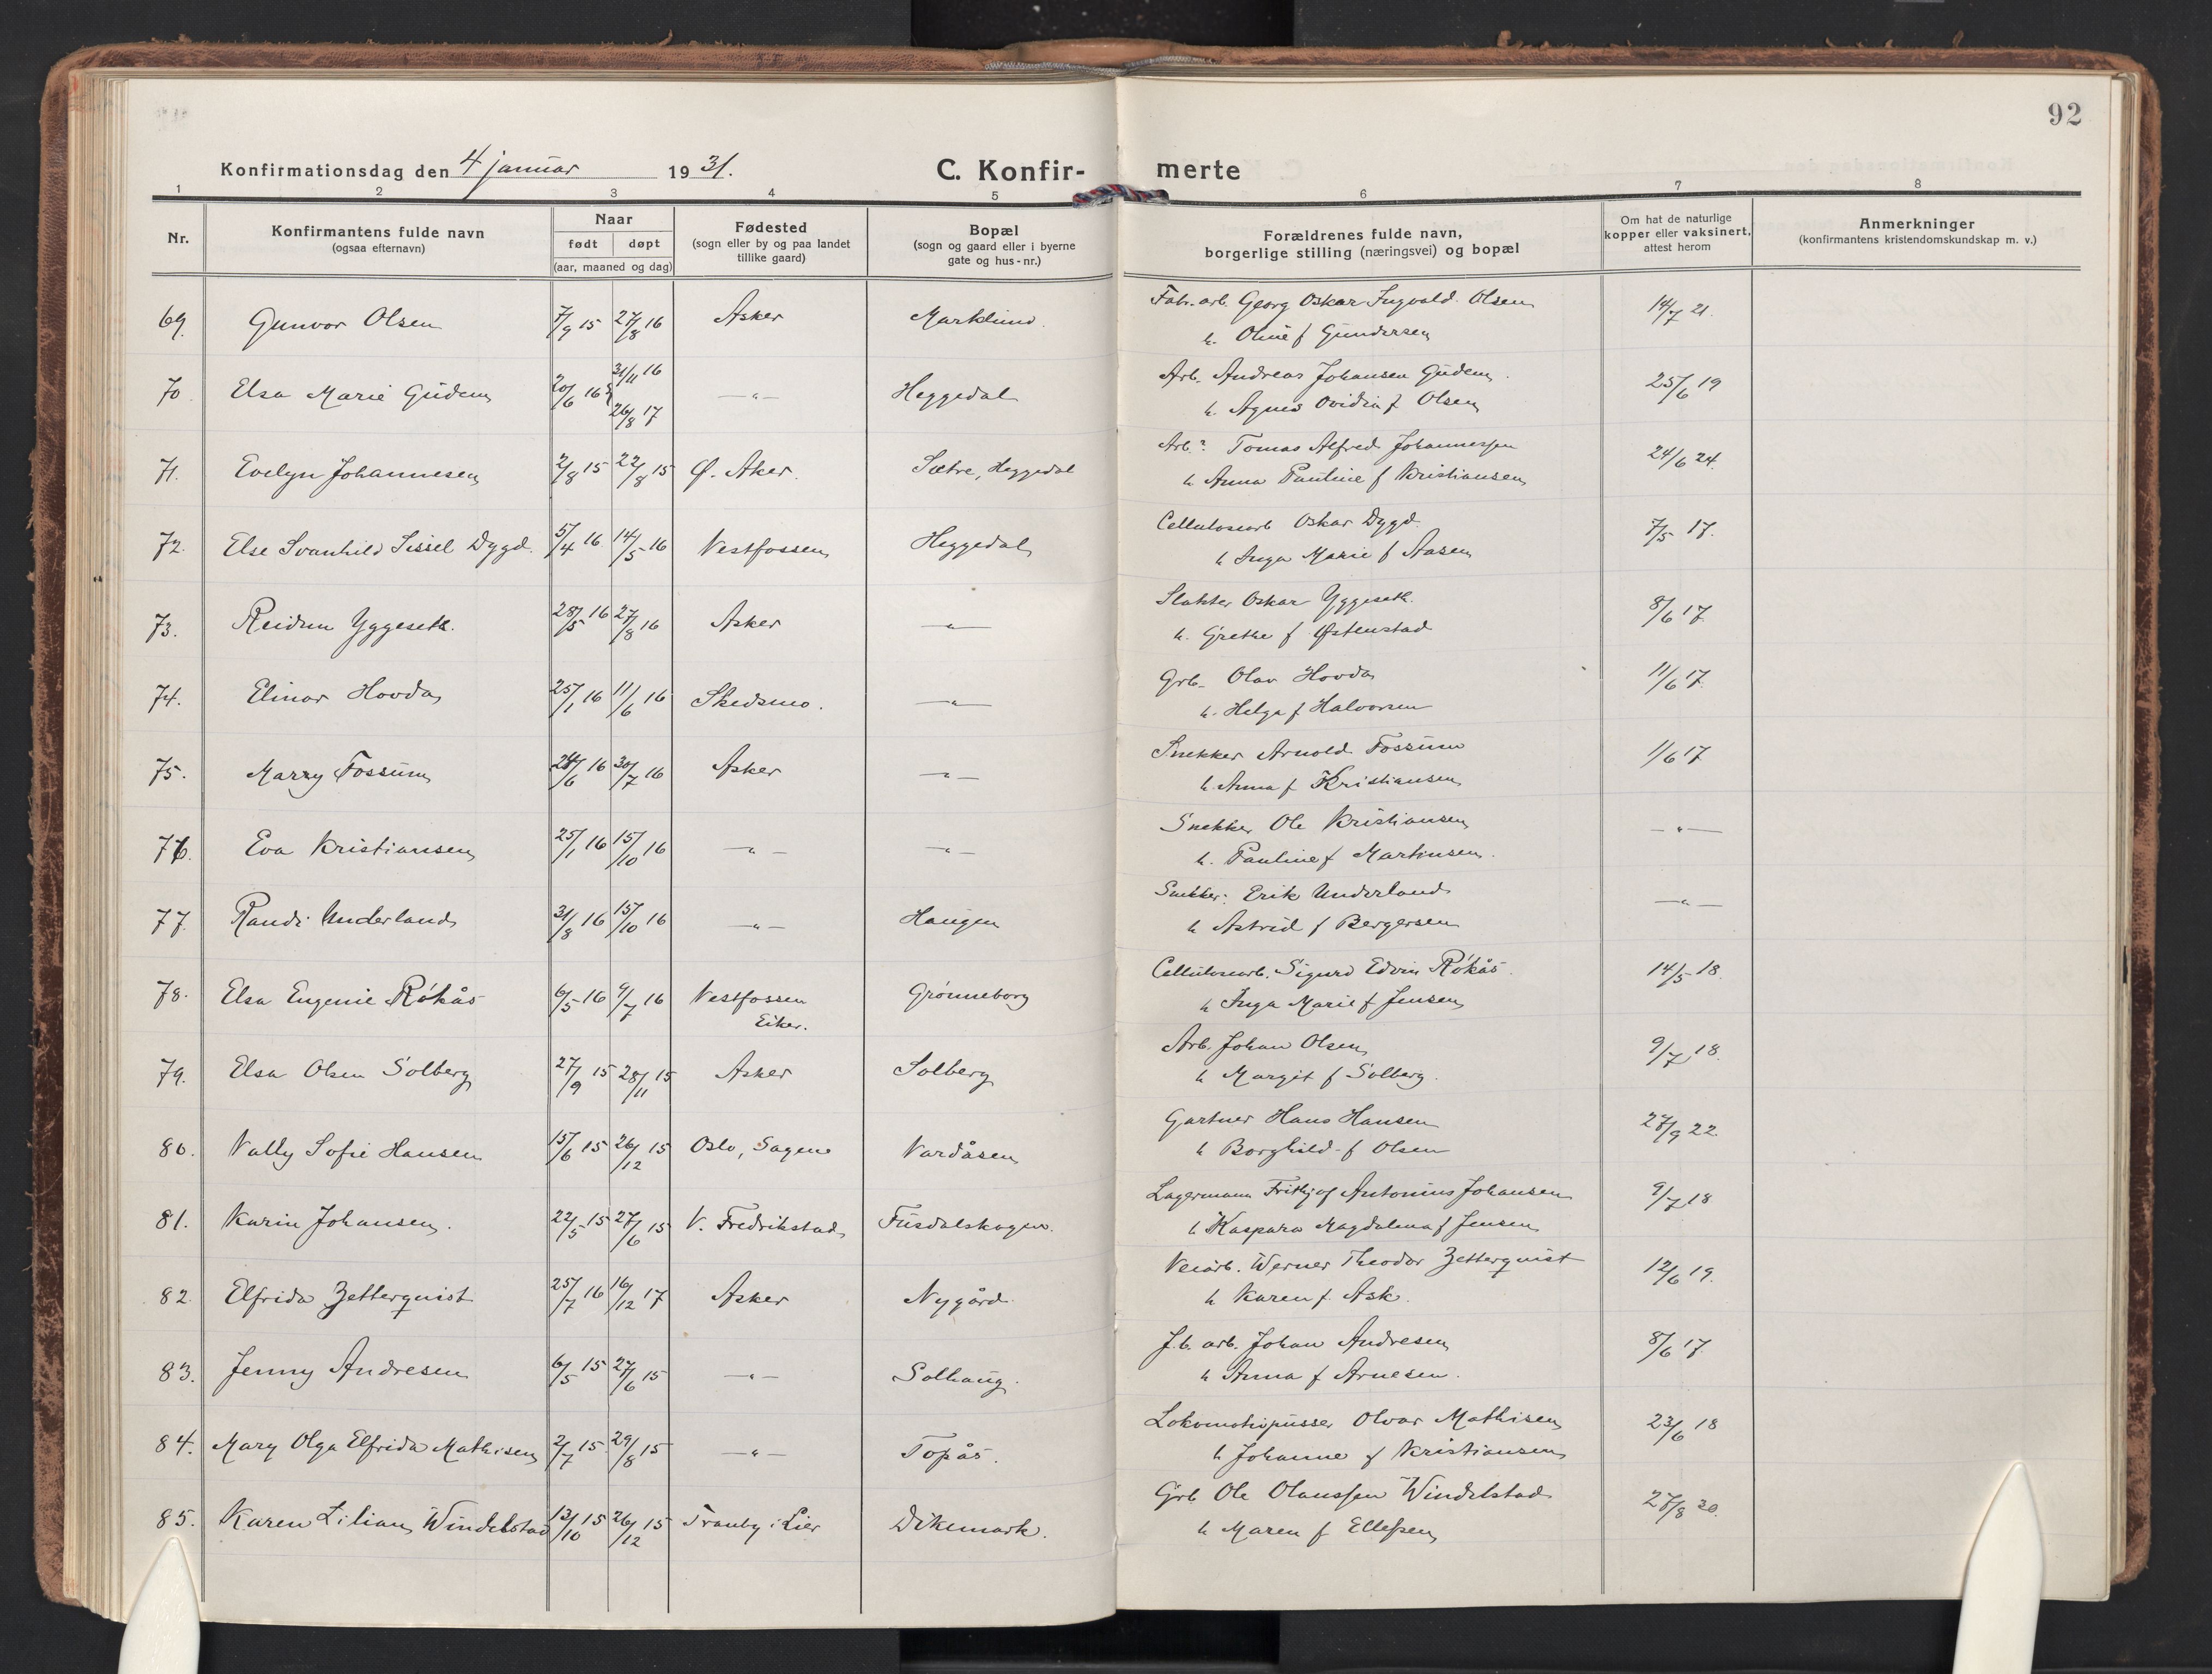 92
Konfirmationsdag den 4 januar 1931.
C. Konfir- merte
1 2 3 4 5 6 7 8
Nr.
Konfirmantens fulde navn
(ogsaa efternavn)
Naar
født døpt
(aar, maaned og dag)
Fødested
(sogn eller by og paa landet
tillike gaard)
Bopæl
(sogn og gaard eller i byerne
gate og hus-nr.)
Forældrenes fulde navn,
borgerlige stilling (næringsvei) og bopæl
Om hat de naturlige
kopper eller vaksinert,
attest herom
Anmerkninger
(konfirmantens kristendomskundskap m. v.)
69. Gunvor Olsen 7/9 15 27/8 16 Asker Marklund. Fabr. arb. Georg Oskar Ingvald Olsen 14/7 21.
h. Oline f Gundersen
70. Elsa Marie Gudem 20/6 16 31/11 16 26/8 17 —"— Heggedal Arb. Andreas Johansen Gudem. 25/6 19
h. Agnes Ovidia f Olsen
71. Evelyn Johannesen 2/8 15 22/8 15 Ø. Aker. Sætre, Heggedal Arb.? Tomas Alfred Johannessen 24/6 24.
h Anna Pauline f Kristiansen
72. Else Svanhild Sissel Dygd. 5/4 16 14/5 16 Vestfossen Heggedal Cellulosearb Oskar Dygd. 7/5 17.
h Inga Marie f Aasen
73. Reidun Yggeseth. 28/5 16 27/8 16 Asker —"— Slakter Oskar Yggeseth. 8/6 17.
h. Grethe f Østenstad
74. Elinor Hovda 25/1 16 11/6 16 Skedsmo. —"— Grb. Olav Hovda 11/6 17.
h. Helga f Halvorsen
75. Marry Fossum 28/6 16 30/7 16 Asker —"— Snekker Arnold Fossum 1/6 17
h. Anna f Kristiansen
76. Eva Kristiansen 25/1 16 15/10 16 —"— —"— Snekker Ole Kristiansen —"—
h. Pauline f Martinsen.
77. Randi Underland 31/8 16 15/10 16 —"— Haugen Snekker. Erik Underland —"—
h Astrid f Bergersen
78. Elsa Eugenie Rökås 6/5 16 9/7 16 Vestfossen Grønneborg Cellulosearb. Sigurd Edvin Rökås. 14/5 18.
Eiker. h Inga Marie f Jensen
79. Elsa Olsen Solberg 27/9 15 28/11 15 Asker Solberg Arb. Johan Olsen 9/7 18.
h Margit f Solberg.
80. Vally Sofie Hansen 15/6 15 26/12 15 Oslo, Sagene Vardåsen Gartner Hans Hansen 27/9 22.
h Borghild f Olsen
81. Karin Johansen. 22/5 15 27/6 15 V. Fredrikstad Fusdalskogen. Lagermann Fritjof Antonius Johansen 9/7 18
h Kaspara Magdalena f Jensen
82. Elfrida Zetterquist 25/7 16 16/12 17 Asker Nygård. Veiarb. Werner Theodor Zetterquist 12/6 19.
h Karen f. Ask.
83. Jenny Andresen 6/5 15 27/6 15 —"— Solhaug. J.b. arb. Johan Andresen 8/6 17.
h Anna f Arnesen.
84. Mary Olga Elfrida Mathisen 2/7 15 29/8 15 —"— Topås. Lokomotivpusser Olvar Mathisen 23/6 18
h Johanne f Kristiansen
85. Karen Lilian Windelstad 13/10 15 26/12 15 Tranby i Lier Dikemark. Grb Ole Olaussen Windelstad 27/8 20.
h Maren f Ellefsen